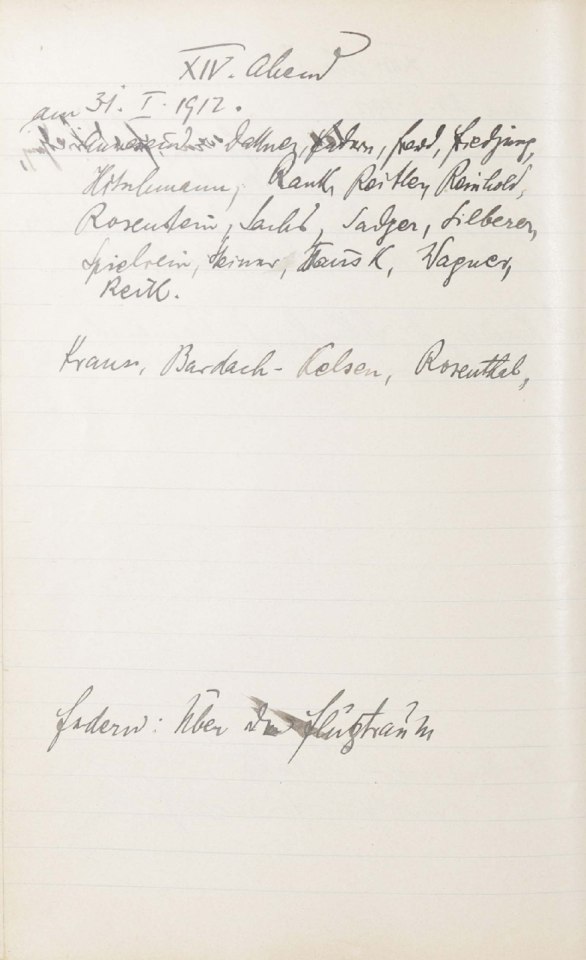 XIV. Abend
am 31. I. 1912.
Anwesend: Dattner, Federn, Freud, Friedjung,
Hitschmann, Rank, Reitler, Reinhold,
Rosenstein, Sachs, Sadger, Silberer,
Spielrein, Steiner, Tausk, Wagner,
Reik.
Kraus, Bardach - Kelsen, Rosenthal,
Federn: Über den Flugtraum